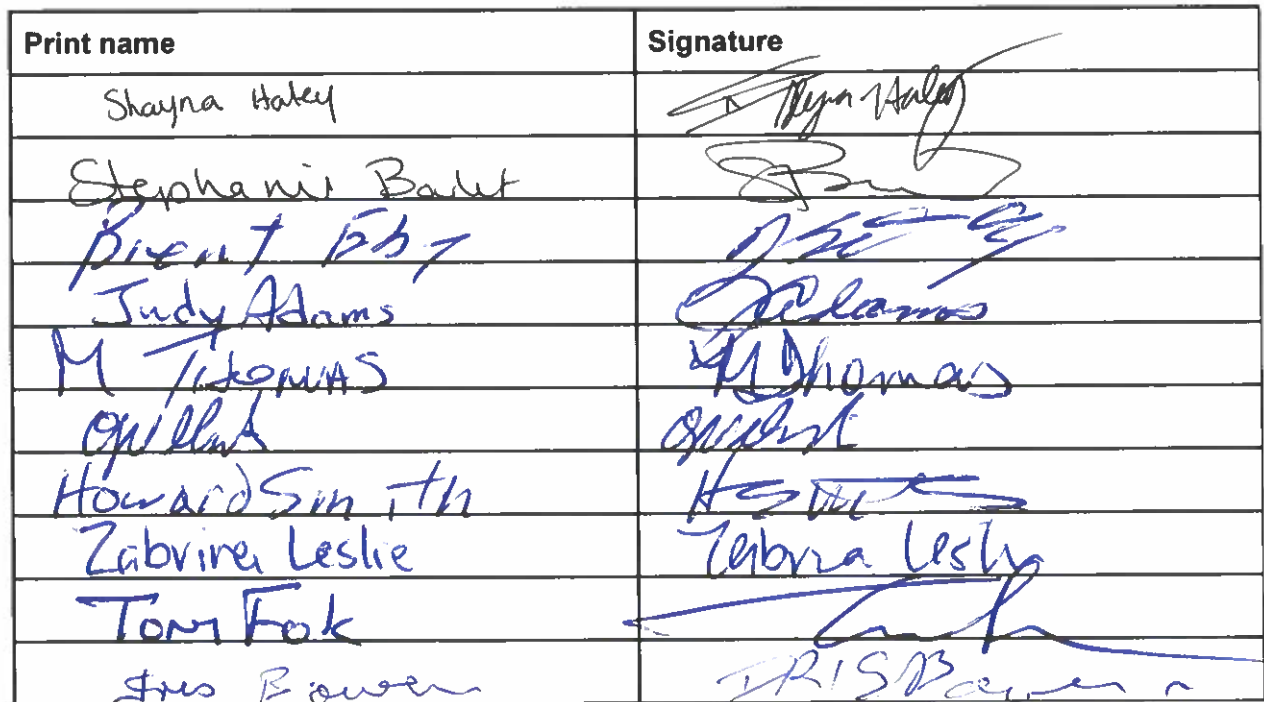 Print name Signature
Shayna Haley Shayna Haley
Stephanie
Brent Eby
Judy Adams J Adams
M THOMAS M Thomas
Howard Smith H Smith
Zabrina Leslie Zabrina Leslie
Tom Fok
Iris Bowen IRIS Bowen